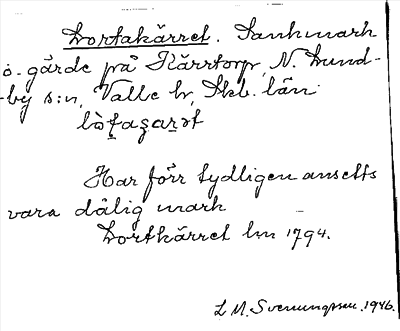 Lortakärret. Sankmark
o. gärde på Kärrtorp, N. Lund-
-by s:n, Valle hd, Skb. län
Har förr tydligen ansetts
vara dålig mark
Lortkärret lm 1794.
L. M. Svenungsson. 1946.